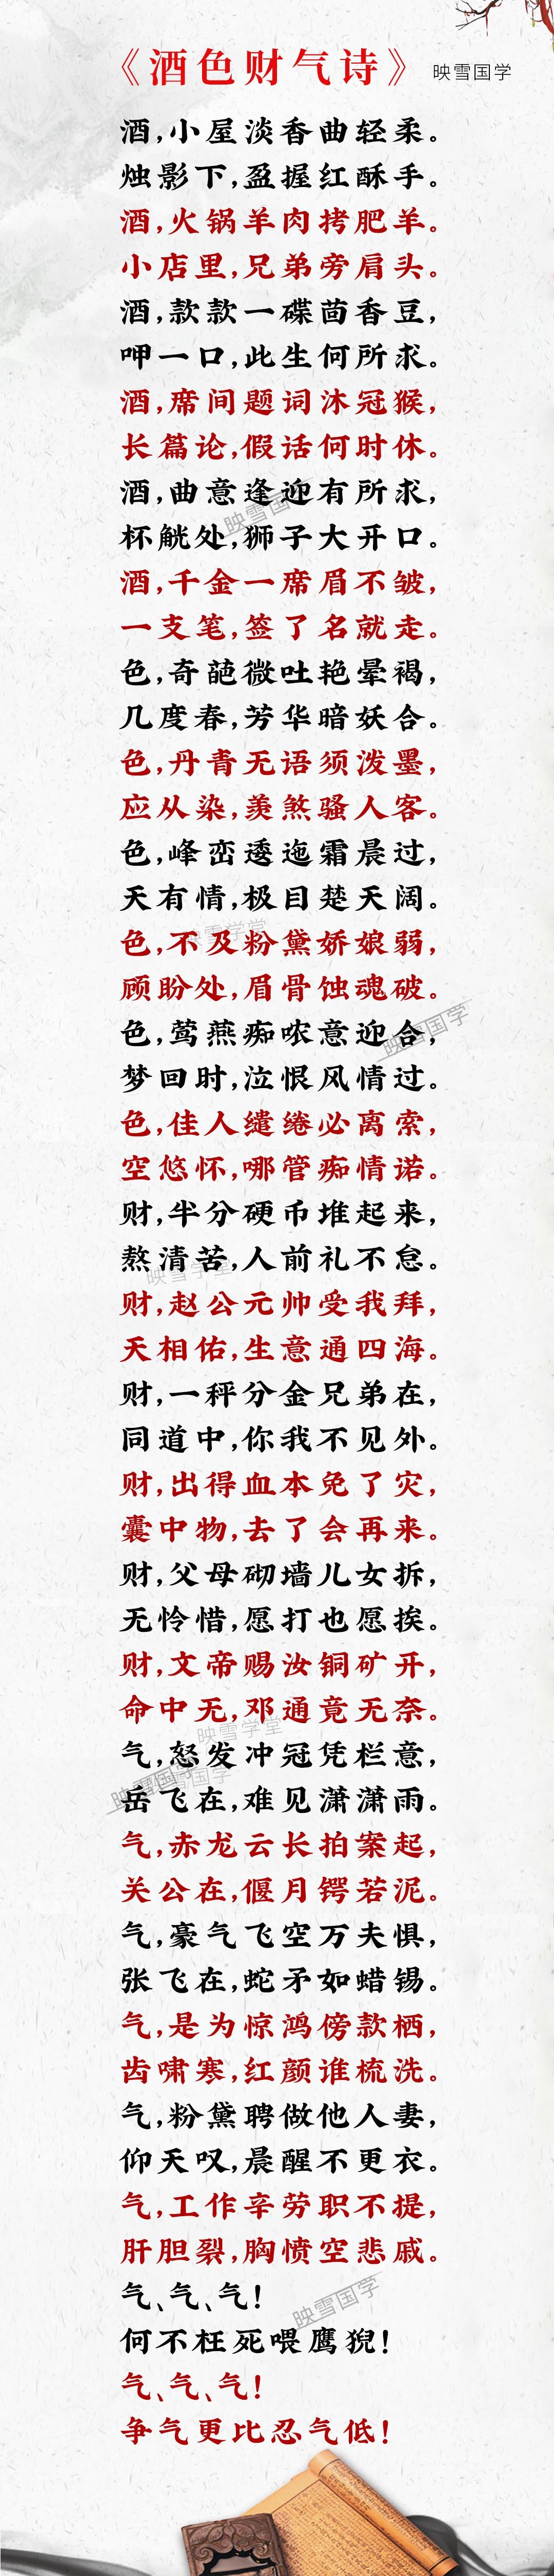 《酒色财气诗》 映雪国学
酒,小屋淡香曲轻柔。
烛影下,盈握红酥手。
酒,火锅羊肉拷肥羊。
小店里,兄弟旁肩头。
酒,款款一碟茴香豆,
呷一口,此生何所求。
酒,席间题词沐冠猴,
长篇论,假话何时休。
酒,曲意逢迎有所求,
映雪国学
杯觥处,狮子大开口。
酒,千金一席眉不皱,
一支笔,签了名就走。
色,奇葩微吐艳晕褐,
几度春,芳华暗妖合。
色,丹青无语须泼墨,
应从染,羡煞骚人客。
色,峰峦逶迤霜晨过,
天有情,极目楚天阔。
映雪学堂
色,不及粉黛娇娘弱,
顾盼处,眉骨蚀魂破。
映雪国学
色,莺燕痴哝意迎合,
梦回时,泣恨风情过。
色,佳人缱绻必离索,
空悠怀,哪管痴情诺。
财,半分硬币堆起来,
熬清苦,人前礼不怠。
映雪学堂
财,赵公元帅受我拜,
天相佑,生意通四海。
财,一秤分金兄弟在,
同道中,你我不见外。
财,出得血本免了灾,
囊中物,去了会再来。
财,父母砌墙儿女拆,
无怜惜,愿打也愿挨。
财,文帝赐汝铜矿开,
命中无,邓通竟无奈。
映雪学堂
气,怒发冲冠凭栏意,
映雪国学
岳飞在,难见潇潇雨。
气,赤龙云长拍案起,
关公在,偃月锷若泥。
气,豪气飞空万夫惧,
张飞在,蛇矛如蜡锡。
气,是为惊鸿傍款栖,
齿啸寒,红颜谁梳洗。
气,粉黛聘做他人妻,
仰天叹,晨醒不更衣。
气,工作辛劳职不提,
肝胆裂,胸愤空悲戚。
气、气、气!
映雪国学
何不枉死喂鹰猊!
气、气、气!
争气更比忍气低!